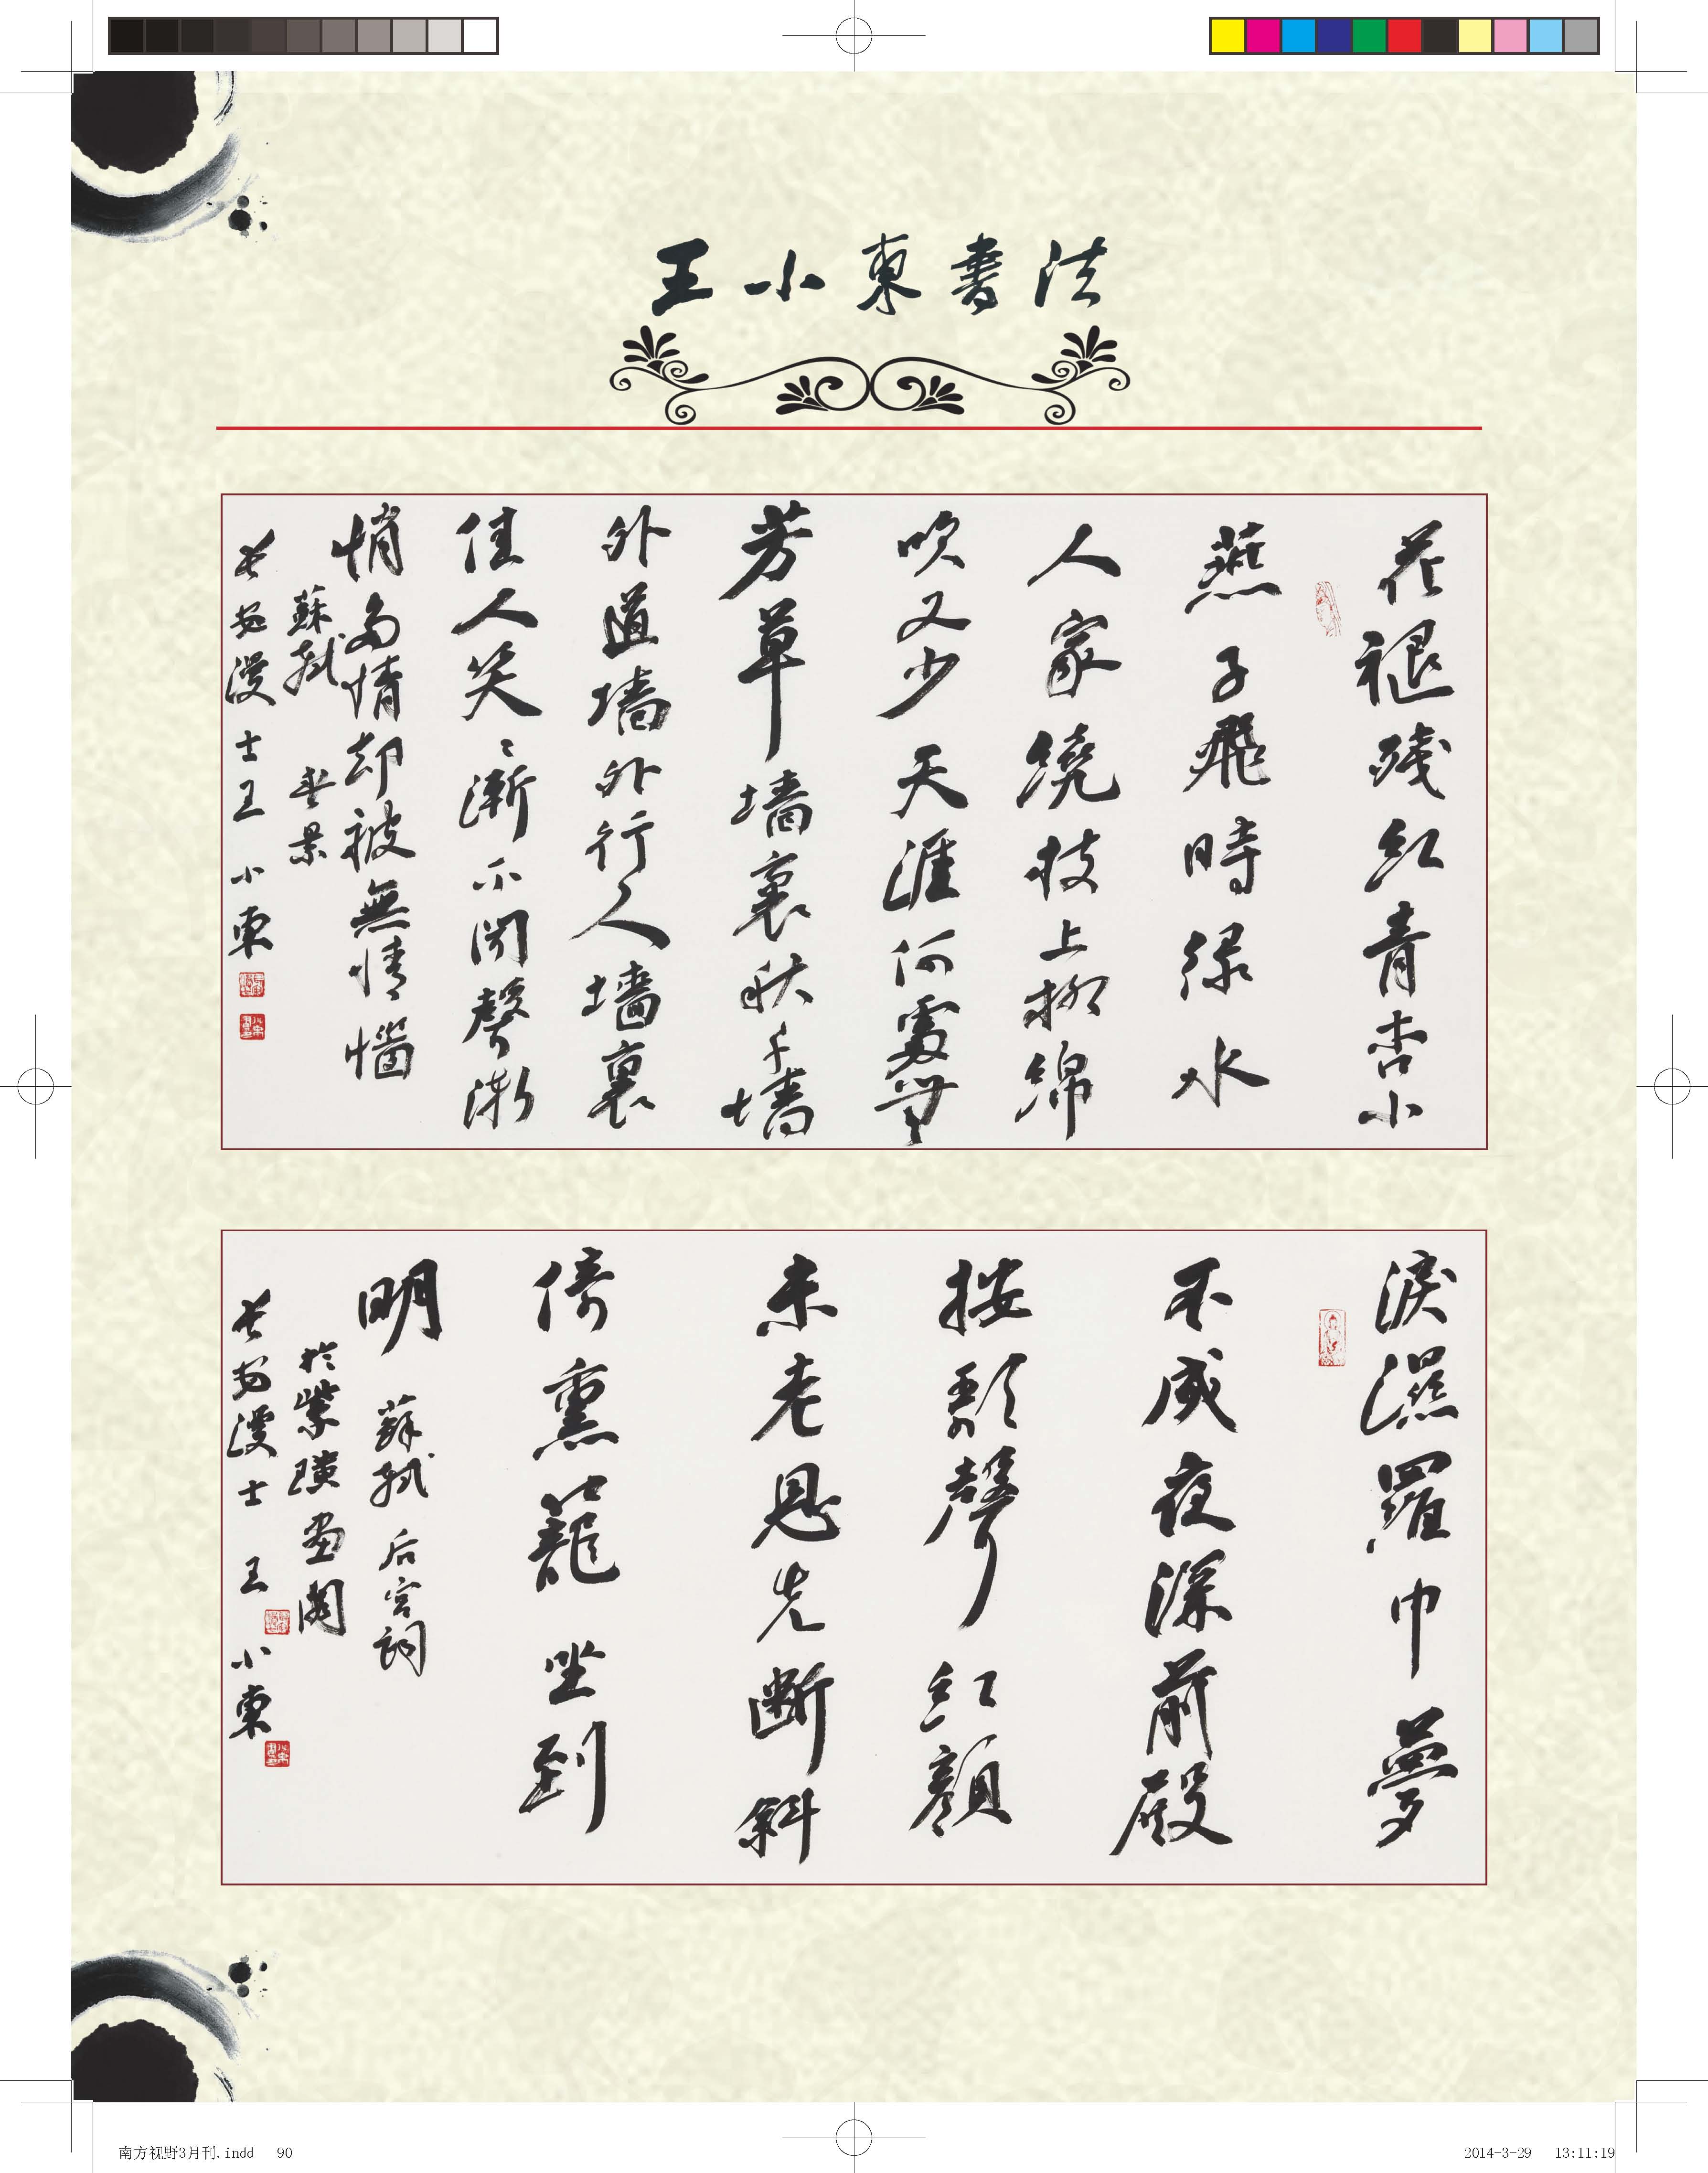 王小東書法
花褪残红青杏小
燕子飛時绿水
人家繞枝上柳綿
吹又少天涯何處無
芳草墙裏秋千墙
外道墙外行人墙裏
佳人笑〻漸不闻聲漸
悄多情却被無情惱
蘇軾 春景
長安漫士王小東
淚濕羅巾夢
不成夜深前殿
按歌聲红顏
未老恩先断斜
倚熏籠坐到
明 蘇軾后宫詞
於紫璜画阁
長安漫士王小東
南方视野3月刊.indd 90
2014-3-29 13:11:19